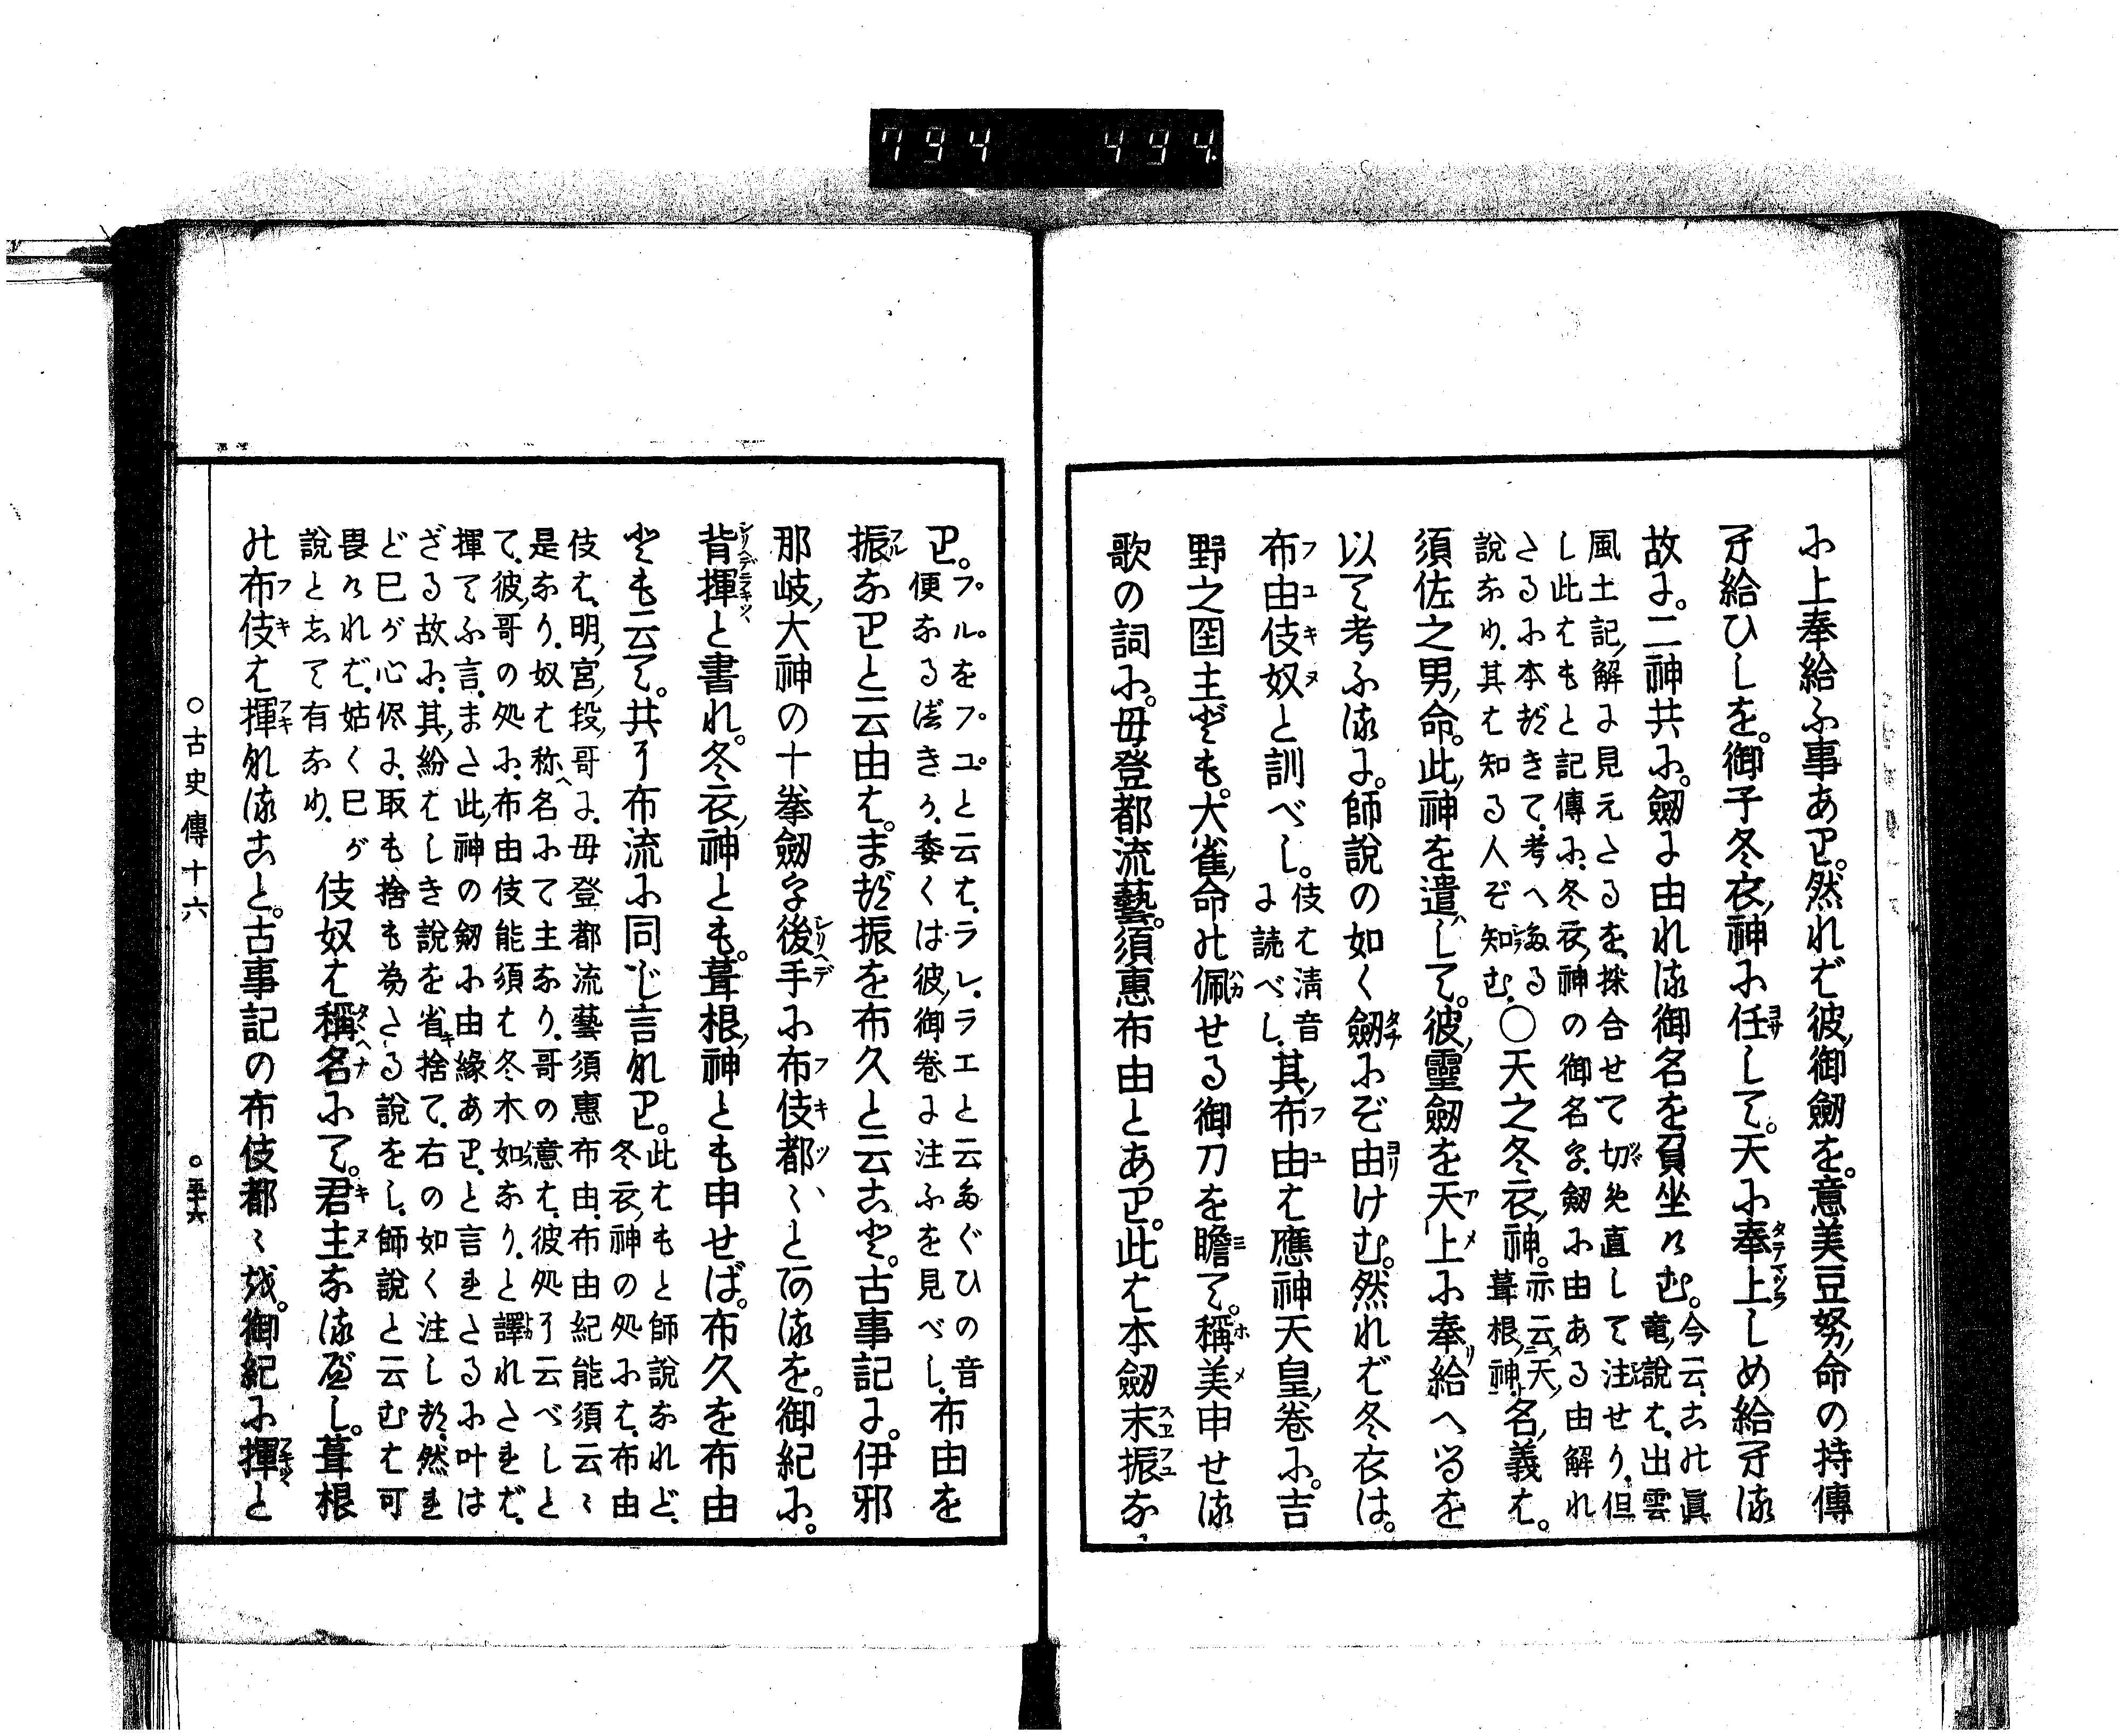 794 494
に上奉給ふ事あり。然れど彼御劔を。意美豆努命の持傳
へ給ひしを。御子冬衣神に任して。天に奉上しめ給へる
故に。二神共に。劔に由れる御名を負坐けむ。今云。この眞龍説は。出雲
風土記解に見えたるを。採合せて切め直して注せり。但
し此はもと記傳に。冬衣神の御名を。劔に由ある由解れ
たるに本づきて。考へ
説なり。其は知る人ぞ知む。〇天之冬衣神。亦云天葺根神名義は。
須佐之男命。此神を遣して。彼靈劔を天上に奉給へるを
以て考ふるに。師説の如く劔にぞ由けむ。然れば冬衣は。
布由伎奴と訓べし。伎は清音に読べし。其布由は應神天皇卷に。吉
野之国主ども。大雀命の佩せる御刀を瞻て。稱美申せる
歌の詞に。毋登都流藝。須惠布由とあり。此は本劔末振な
り。プル。をプユ。と云は。ラレ。ラエと云たぐひの音便なるべきか。委くは彼御卷に注ふを見べし。布由を
振なりと云由は。まづ振を布久と云こと。古事記に。伊邪
那岐大神の十拳劔を後手に布伎都々とあるを。御紀に。
背揮と書れ。冬衣神とも。葺根神とも申せば。布久を布由
とも云て。共に布流に同じ言なり。此はもと師説なれど。冬衣神の処には。布由
伎は。明宮段哥に。毋登都流藝須惠布由。布由紀能須云〻
是なり。奴は称へ名にて主なり。哥の意は。彼処に云べしと
て。彼哥の処に。布由伎能須は冬木如なり。と譯れたれば。
揮てふ言。また此神の劔に由緣あり。と言れたるに叶は
ざる故に。其紛はしき説を省捨て。右の如く注しつ。然れ
ど已が心侭に。取も捨も爲たる説をし。師説と云むは可
畏ければ。姑く已が
説として有なり。伎奴は稱名にて。君主なるべし。葺根
の布伎は揮なること。古事記の布伎都〻を。御紀に揮と
〇古史傳十六 〇五十六